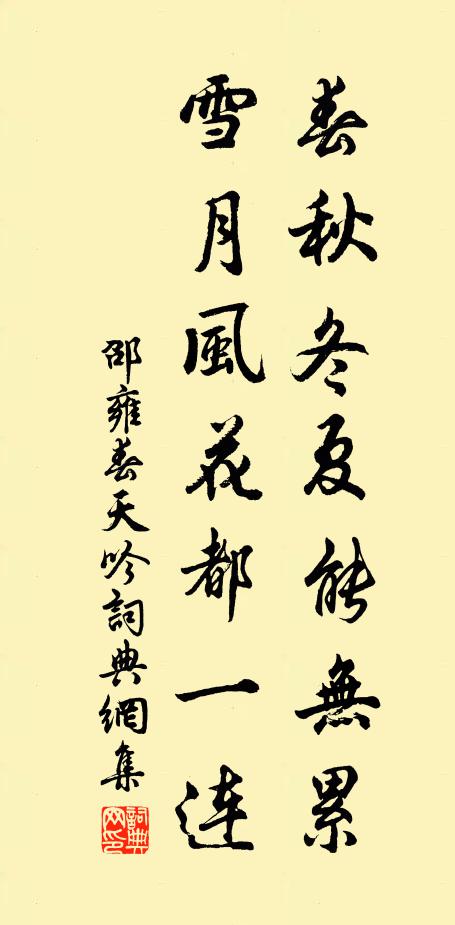 春秋冬夏能無累
雪月風花都一連
邵雍春天吟詞典網集
詞典網印